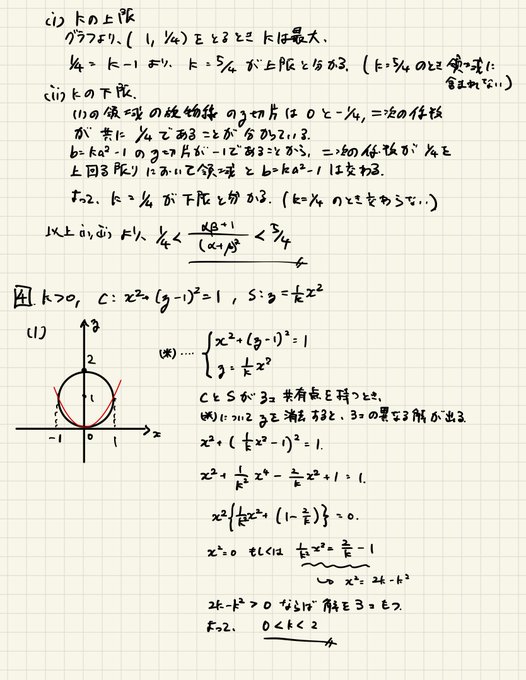 (i) kの上限
グラフより、(1, 1/4) をとるとき k は最大。
1/4 = k-1 より、k = 5/4 が上限と分かる。(k=5/4 のとき領域に
含まれない)
(ii) kの下限。
(1)の領域の放物線のy切片は 0 と -1/4, 二次の係数
が共に 1/4 であることが分かっている。
b=ka²-1 のy切片が-1であることから、二次の係数が 1/4を
上回る限りにおいて領域と b=ka²-1 は交わる。
よって、k=1/4 が下限と分かる。(k=1/4 のとき交わらない)
以上(i),(ii)より、1/4 < (αβ+1)/(α+β)² < 5/4
4. k>0, C: x²+(y-1)²=1, S: y=1/k x²
(1)
y
2
1
-1 0 1 x
(*) ···· { x²+(y-1)²=1
y=1/k x²
CとSが3コ共有点を持つとき、
(*)について yを消去すると、3コの異なる解が出る。
x²+(1/k x²-1)²=1.
x²+1/k² x⁴-2/k x²+1=1.
x²{1/k² x²+(1-2/k)}=0.
x²=0 もしくは 1/k² x²=2/k-1
↳ x²=2k-k²
2k-k²>0 ならば 解を3コもつ
よって、0<k<2